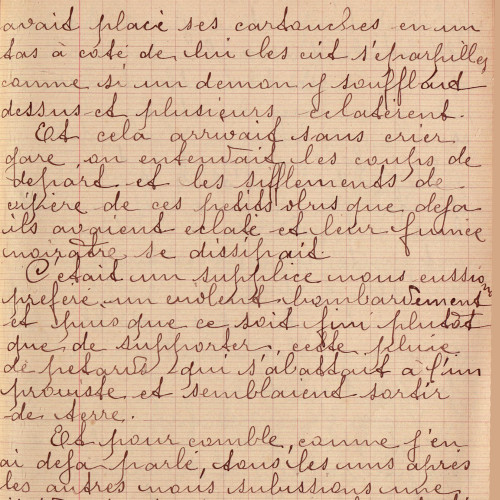 avait placé ses cartouches en un
tas à côté de lui les eut s'éparpiller
comme si un demon y soufflait
dessus et plusieurs eclatèrent.
Et cela arrivait sans crier
gare, on entendait les coups de
depart et les sifflements de
vipère de ces petits obus que deja
ils avaient eclaté et leur fumée
noirâtre se dissipait
C'était un supplice nous eussions
préféré un violent bombardement
et puis que ce soit fini plutôt
que de supporter, cette pluie
de petards qui s'abattait à l'im
proviste et semblaient sortir
de terre.
Et pour comble, comme j'en
ai deja parlé, tous les uns après
les autres nous subissions une